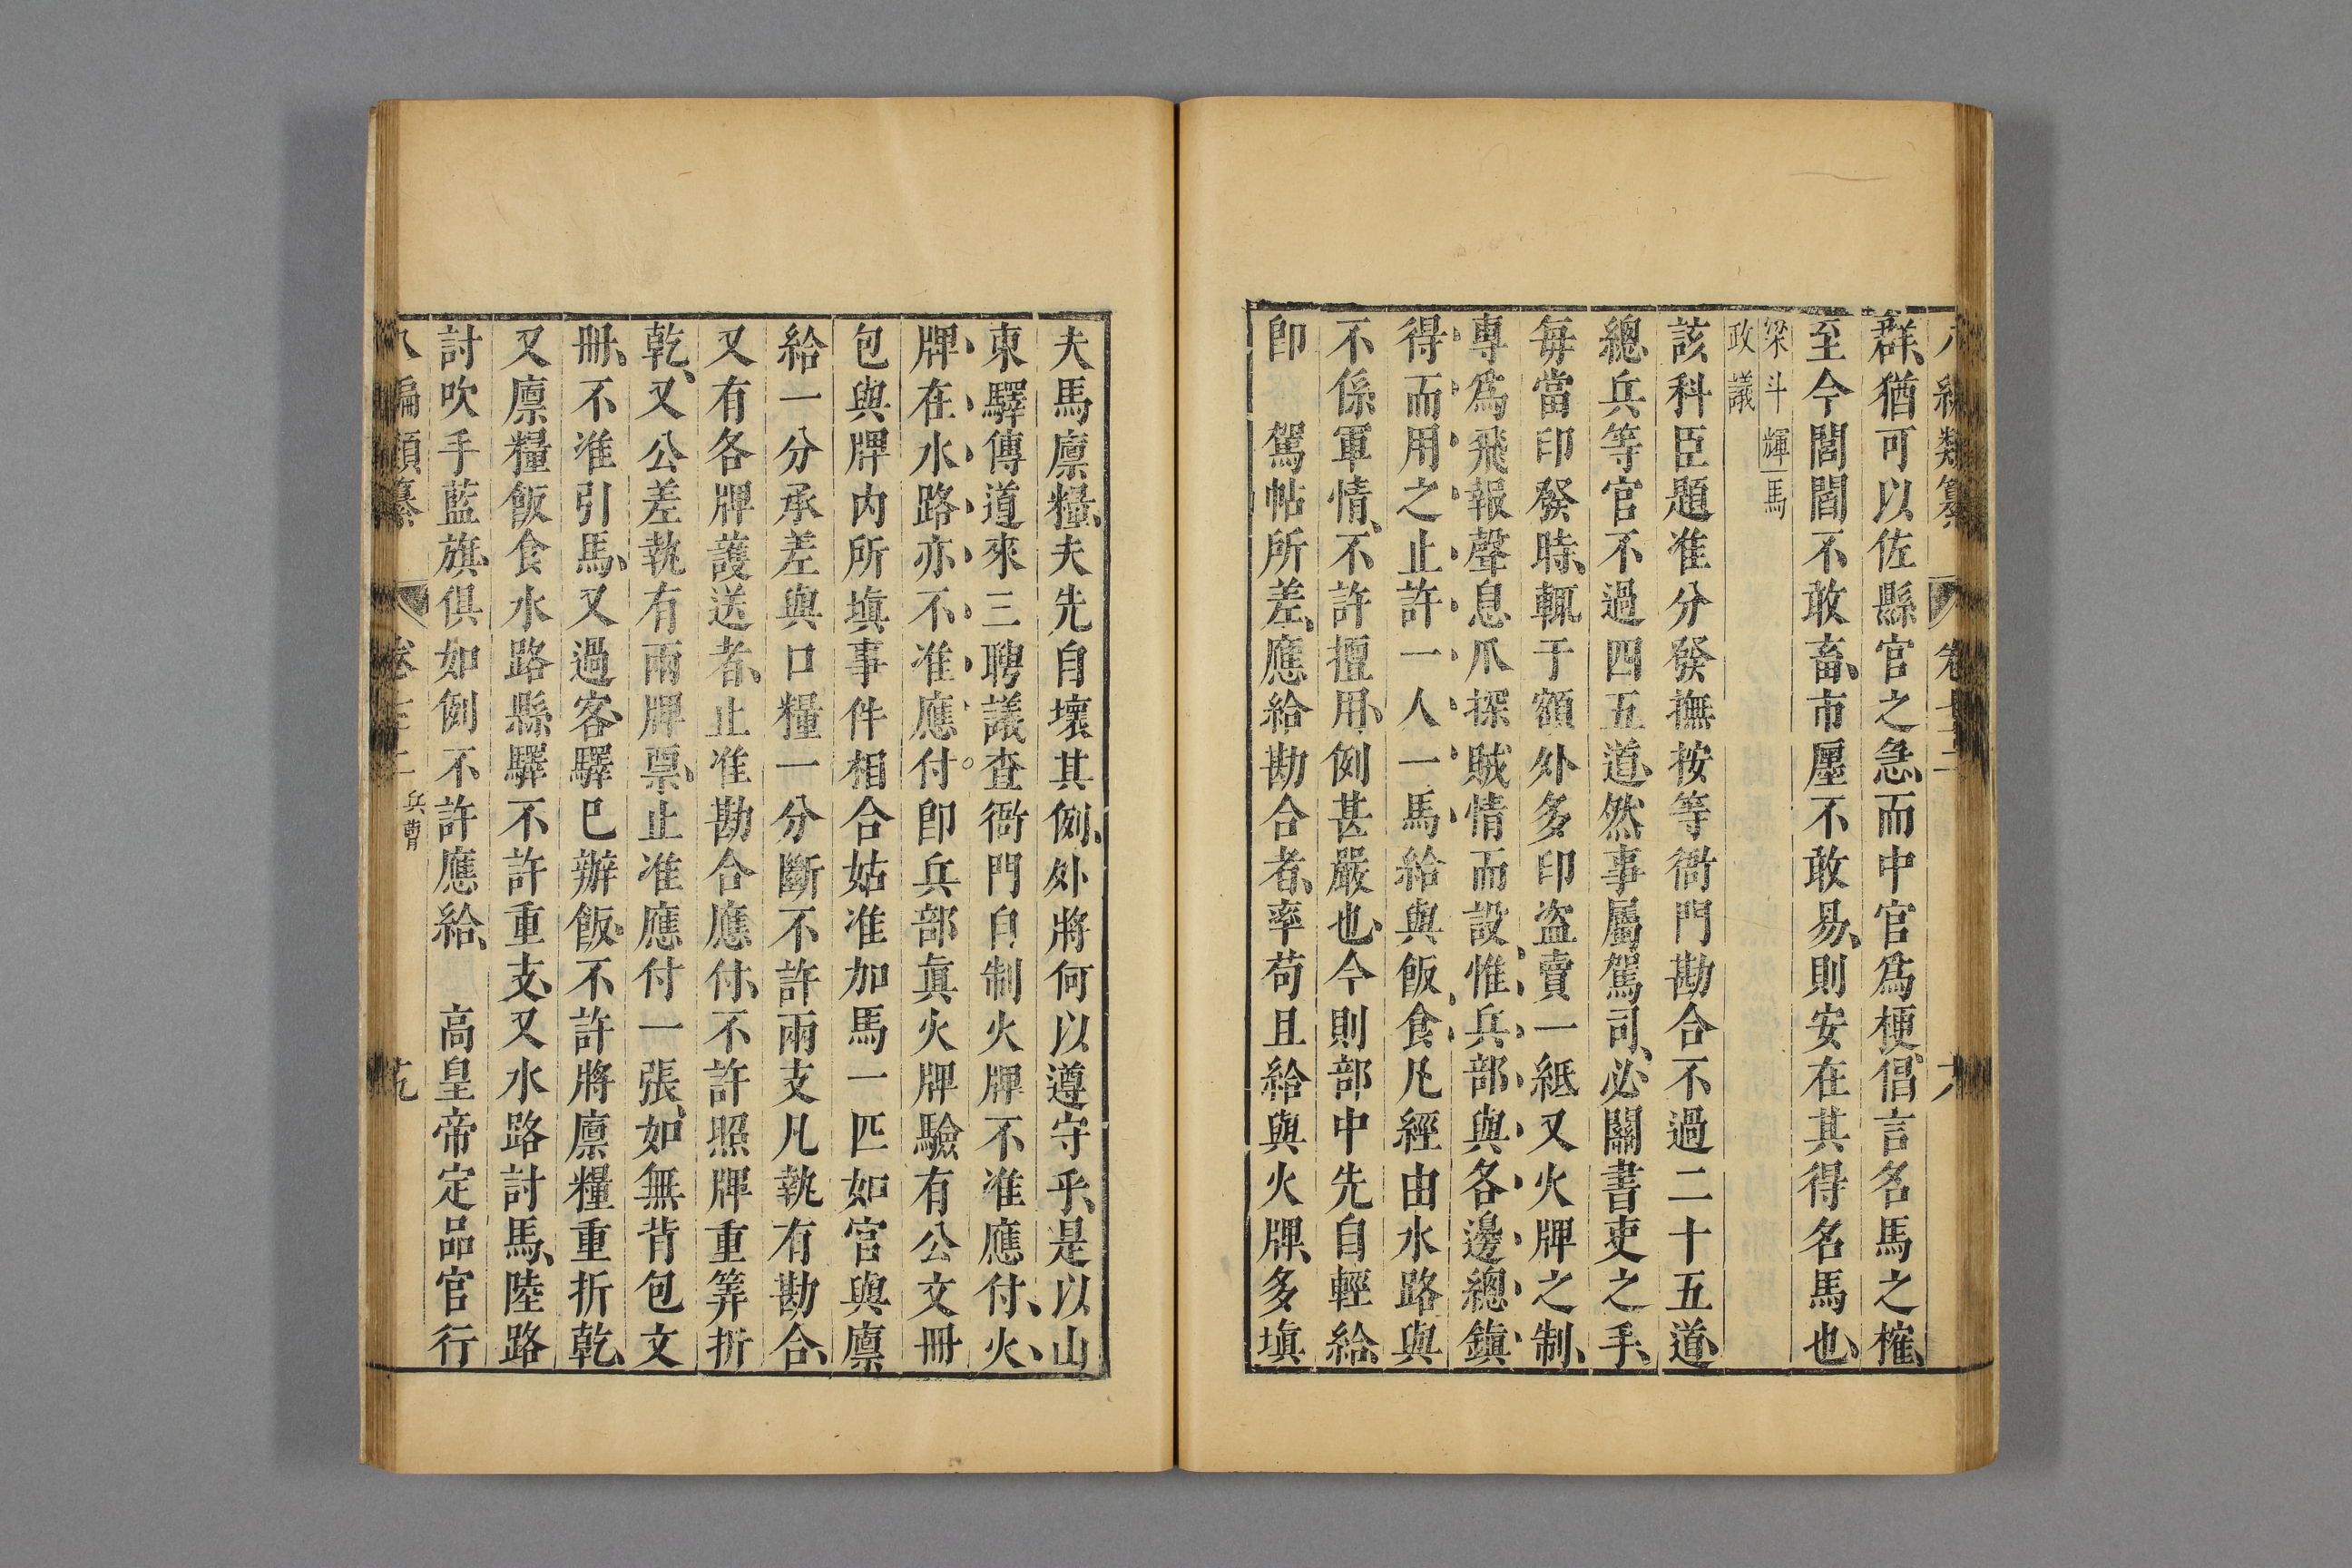 群、猶可以佐縣官之急、而中官爲梗、倡言名馬之㩁、
至今閭閻不敢畜、市廛不敢易、則安在其得名馬也、
梁斗輝馬
政議
該科臣題准分發撫按等衙門勘合不過二十五道、
總兵等官不過四五道、然事屬駕司、必關書吏之手、
每當印發時、輒于額外多印盜賣一紙又火牌之制、
專爲飛報聲息爪探賊情而設惟兵部與各邊總鎮
得而用之止許一人一馬給與飯食凡經由水路與
不係軍情、不許擅用、例甚嚴也、今則部中先自輕給、
卽　駕帖所差、應給勘合者、率苟且給與火牌、多塡
夫馬廪糧、夫先自壞其例、外將何以遵守乎、是以山
東驛傳道來三聘議查衙門自制火牌不准應付、火
牌在水路亦不准應付。卽兵部眞火牌驗有公文冊
包與牌内所塡事件相合姑准加馬一匹如官與廪
給一分承差與口糧一分斷不許兩支凡執有勘合、
又有各牌護送者、止准勘合應付、不許照牌重筭折
乾、又公差執有兩牌票、止准應付一張、如無背包文
冊、不准引馬、又過客、驛巳辦飯、不許將廪糧重折乾、
又廪糧飯食水路縣驛不許重支、又水路討馬、陸路
討吹手藍旗、俱如例不許應給、　高皇帝定品官行
八編類纂　卷　兵曹